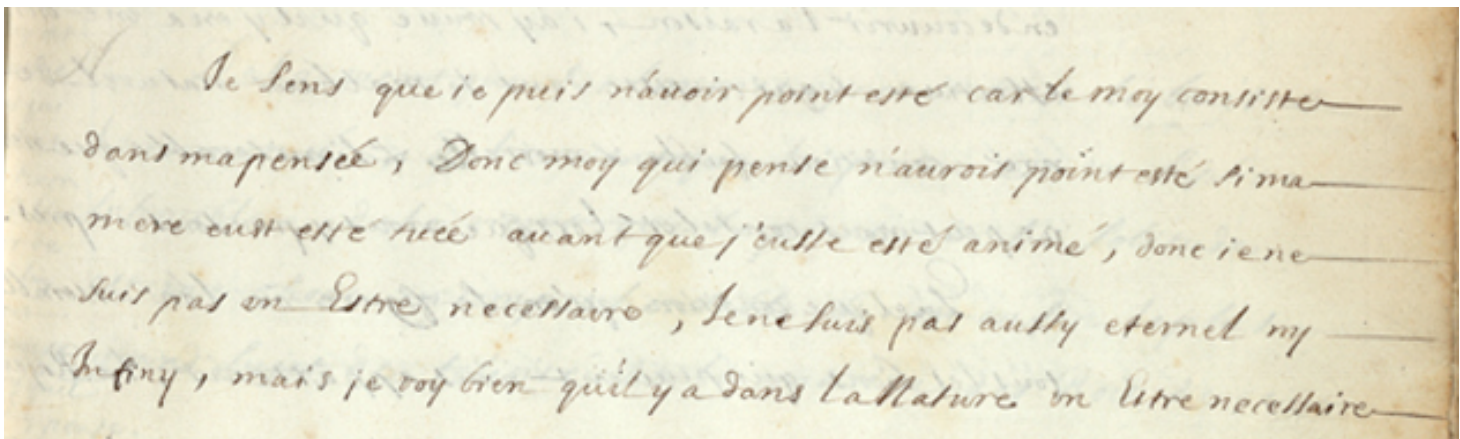 Je sens que ie puis n'auoir point esté car le moy consiste
dans ma pensée, Donc moy qui pense n'aurois point esté si ma
mere eust esté tuée auant que j'eusse esté animé, donc ie ne
suis pas vn Estre necessaire, Je ne suis pas aussy eternel ny
Infiny, mais je voy bien qu'il y a dans la Nature vn Estre necessaire